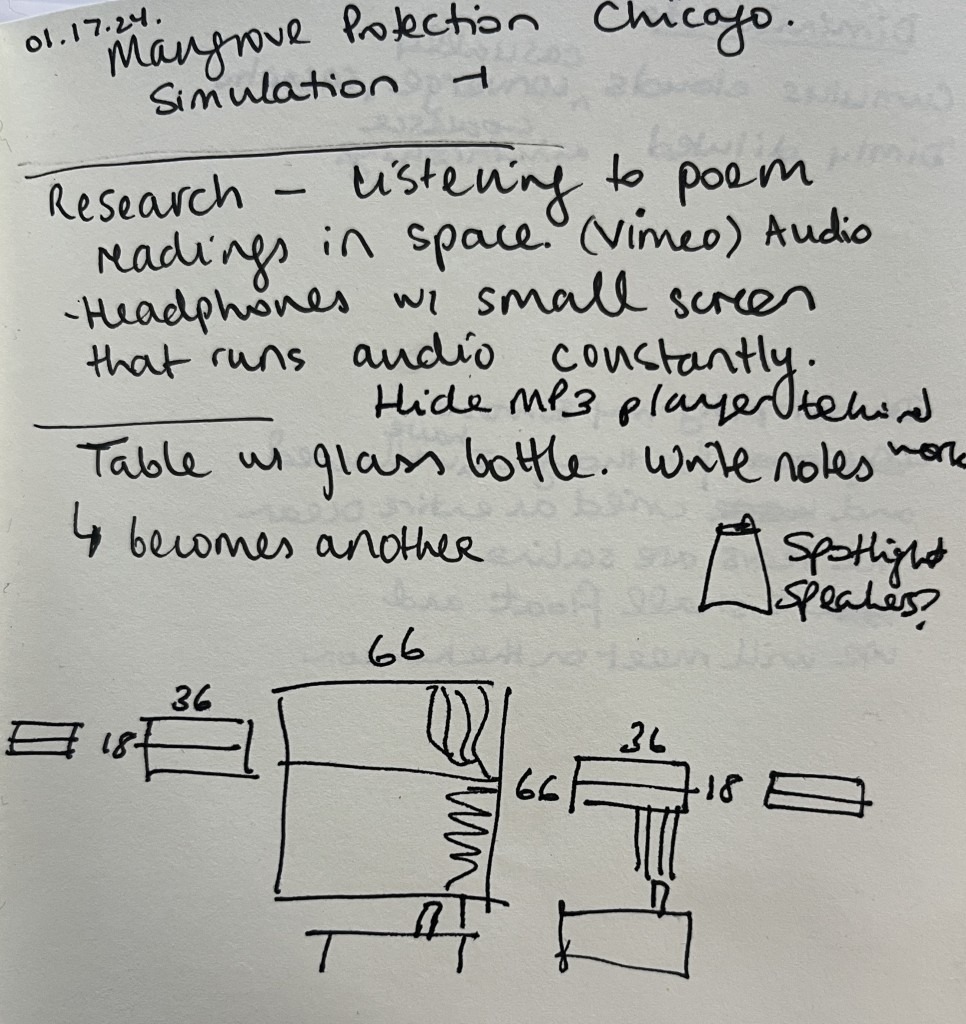 01.17.24.
Mangrove Protection Chicago.
Simulation
Research – Listening to poem
readings in space. (Vimeo) Audio
-Headphones w/ small screen
that runs audio constantly.
Hide MP3 player behind
work
Table w/ glass bottle. Write notes
↳ becomes another
Spotlight
Speakers?
66
36
18
36
66
18